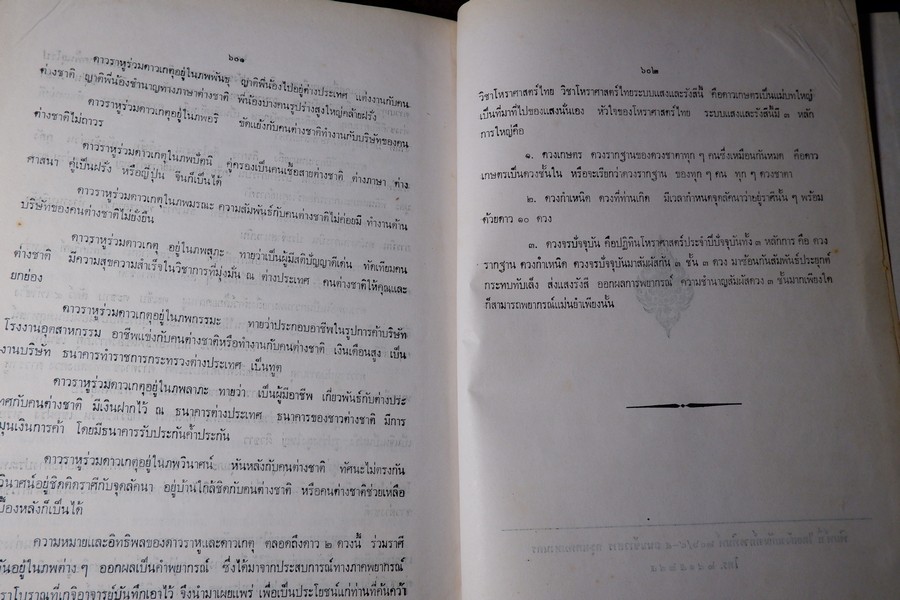 ๖๐๑
ดาวราหูร่วมดาวเกตุอยู่ในภพพันธุ ญาติพี่น้องไปอยู่ต่างประเทศ แต่งงานกับคน
ต่างชาติ ญาติพี่น้องชำนาญทางภาษาต่างชาติ พี่น้องบางคนรูปร่างสูงใหญ่คล้ายฝรั่ง
ดาวราหูร่วมดาวเกตุอยู่ในภพอริ ขัดแย้งกับคนต่างชาติทำงานกับบริษัทของคน
ต่างชาติไม่ถาวร
ดาวราหูร่วมดาวเกตุอยู่ในภพปัตนิ คู่ครองเป็นคนเชื้อสายต่างชาติ ต่างภาษา ต่าง
ศาสนา คู่เป็นฝรั่ง หรือญี่ปุ่น จีนก็เป็นได้
ดาวราหูร่วมดาวเกตุอยู่ในภพมรณะ ความสัมพันธ์กับคนต่างชาติไม่ค่อยมี ทำงานด้าน
บริษัทของคนต่างชาติไม่ยั่งยืน
ดาวราหูร่วมดาวเกตุ อยู่ในภพสุภะ ทายว่าเป็นผู้มีสติปัญญาดีเด่น ทัดเทียมคน
ต่างชาติ มีความสุขความสำเร็จในวิชาการที่มุ่งมั่น ณ ต่างประเทศ คนต่างชาติให้คุณและ
ยกย่อง
ดาวราหูร่วมดาวเกตุอยู่ในภพกรรมะ ทายว่าประกอบอาชีพในรูปการค้าบริษัท
โรงงานอุตสาหกรรม อาชีพแข่งกับคนต่างชาติหรือทำงานกับคนต่างชาติ เงินเดือนสูง เป็น
งานบริษัท ธนาคารทำราชการกระทรวงต่างประเทศ เป็นทูต
ดาวราหูร่วมดาวเกตุอยู่ในภพลาภะ ทายว่า เป็นผู้มีอาชีพ เกี่ยวพันธ์กับต่างประ
เทศกับคนต่างชาติ มีเงินฝากไว้ ณ ธนาคารต่างประเทศ ธนาคารของชาวต่างชาติ มีการ
มุนเงินการค้า โดยมีธนาคารรับประกันค้ำประกัน
ดาวราหูร่วมดาวเกตุอยู่ในภพวินาศน์ หันหลังกับคนต่างชาติ ทัศนะไม่ตรงกัน
วินาศน์อยู่ชิดติดราศีกับจุดลัคนา อยู่บ้านใกล้ชิดกับคนต่างชาติ หรือคนต่างชาติช่วยเหลือ
บื้องหลังก็เป็นได้
ความหมายและอิทธิพลของดาวราหูและดาวเกตุ ตลอดถึงดาว ๒ ดวงนี้ ร่วมราศี
กันอยู่ในภพต่าง ๆ ออกผลเป็นคำพยากรณ์ ซึ่งได้มาจากประสบการณ์ทางภาคพยากรณ์
ราโบราณที่เกจิอาจารย์บันทึกเอาไว้ จึงนำมาเผยแพร่ เพื่อเป็นประโยชน์แก่ท่านที่ค้นคว้า
๖๐๒
วิชาโหราศาสตร์ไทย วิชาโหราศาสตร์ไทยระบบแสงและรังสีนี้ คือดาวเกษตรเป็นแม่บทใหญ่
เป็นที่มาที่ไปของแสงนั่นเอง หัวใจของโหราศาสตร์ไทย ระบบแสงและรังสีนี้มี ๓ หลัก
การใหญ่คือ
๑. ดวงเกษตร ดวงรากฐานของดวงชาตาทุก ๆ คนซึ่งเหมือนกันหมด คือดาว
เกษตรเป็นดวงชั้นใน หรือจะเรียกว่าดวงรากฐาน ของทุก ๆ คน ทุก ๆ ดวงชาตา
๒. ดวงกำเนิด ดวงที่ท่านเกิด มีเวลากำหนดจุดลัคนาว่าอยู่ราศีนั้น ๆ พร้อม
ด้วยดาว ๑๐ ดวง
๓. ดวงจรปัจจุบัน คือปฏิทินโหราศาสตร์ประจำปีปัจจุบันทั้ง ๓ หลักการ คือ ดวง
รากฐาน ดวงกำเนิด ดวงจรปัจจุบันมาสัมผัสกัน ๓ ชั้น ๓ ดวง มาซ้อนกันสัมพันธ์ประยุกต์
กระทบทับเล็ง ส่งแสงรังสี ออกผลการพยากรณ์ ความชำนาญสัมผัสดวง ๓ ชั้นมากเพียงใด
ก็สามารถพยากรณ์แม่นยำเพียงนั้น